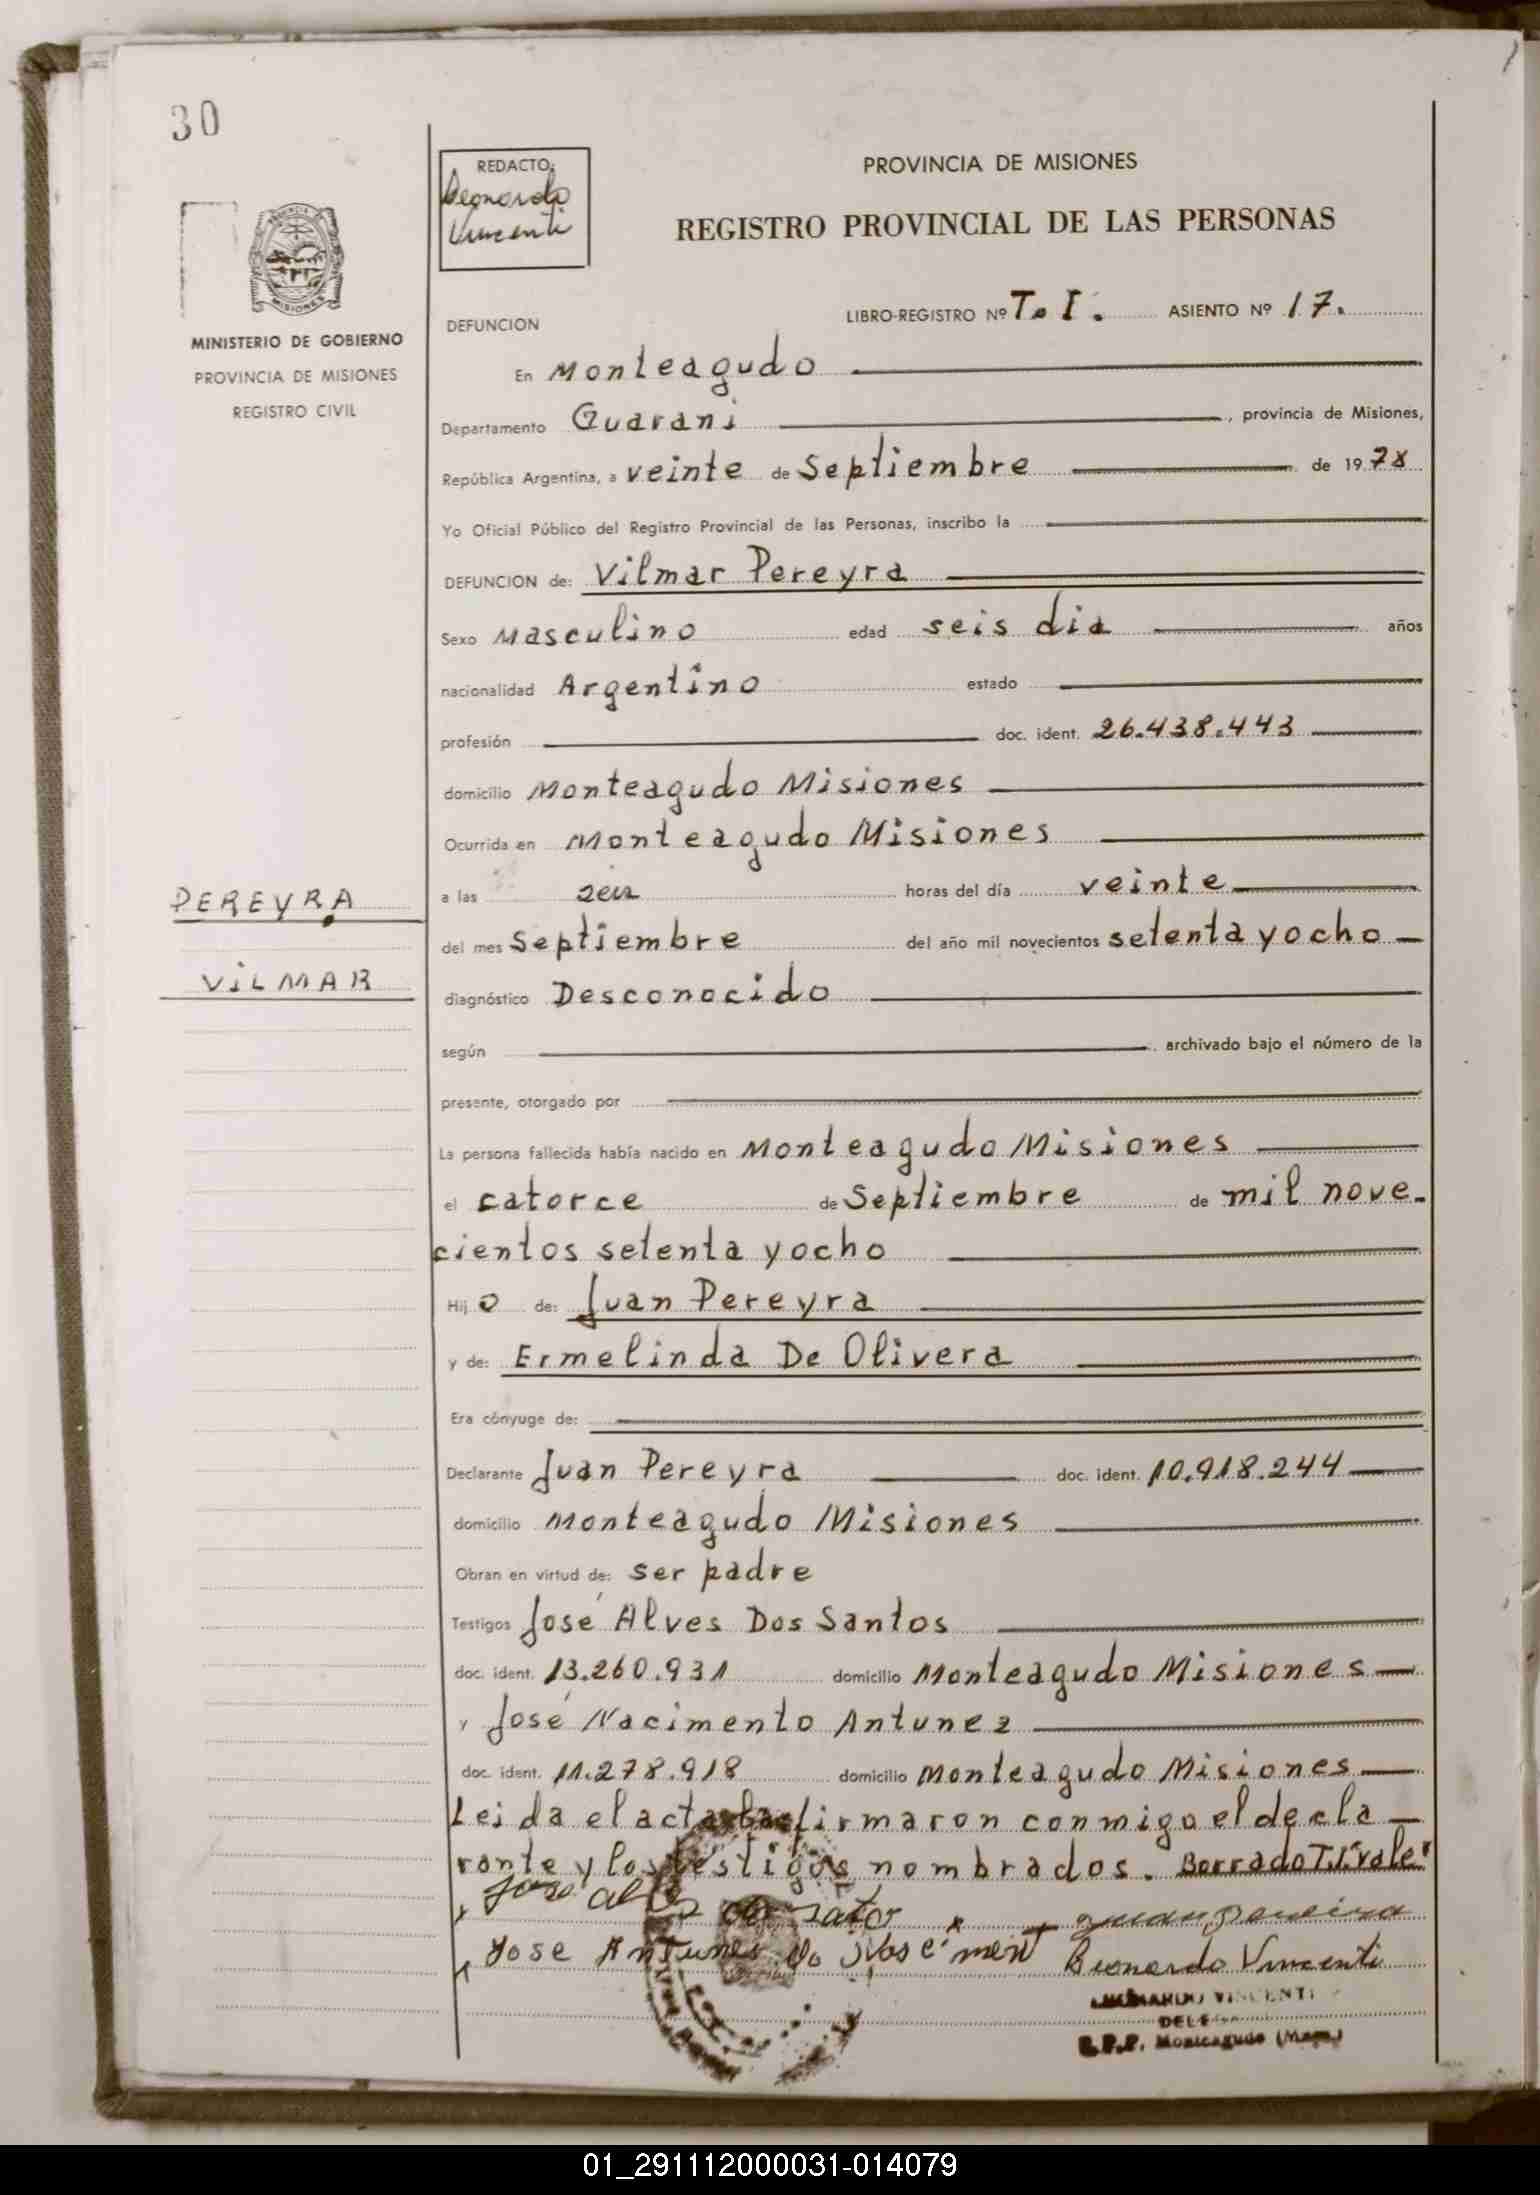 30
REDACTO:
Leonardo
Vincenti
PROVINCIA DE MISIONES
REGISTRO PROVINCIAL DE LAS PERSONAS
MISIONES
MINISTERIO DE GOBIERNO
PROVINCIA DE MISIONES
REGISTRO CIVIL
DEFUNCION LIBRO-REGISTRO Nº T. I. ASIENTO Nº 17.
En Monteagudo
Departamento Guarani, provincia de Misiones,
República Argentina, a veinte de Septiembre de 1978
Yo Oficial Público del Registro Provincial de las Personas, inscribo la
DEFUNCION de: Vilmar Pereyra
Sexo Masculino edad seis dia años
nacionalidad Argentino estado
profesión doc. ident. 26.438.443
domicilio Monteagudo Misiones
Ocurrida en Monteagudo Misiones
PEREYRA
a las horas del día veinte
del mes Septiembre del año mil novecientos setenta y ocho
VILMAR
diagnóstico Desconocido
según , archivado bajo el número de la
presente, otorgado por
La persona fallecida había nacido en Monteagudo Misiones
el catorce de Septiembre de mil nove-
cientos setenta y ocho
Hijo de: Juan Pereyra
y de: Ermelinda De Olivera
Era cónyuge de:
Declarante Juan Pereyra doc. ident. 10.918.244
domicilio Monteagudo Misiones
Obran en virtud de: ser padre
Testigos José Alves Dos Santos
doc. ident. 13.260.931 domicilio Monteagudo Misiones
y José Nacimento Antunez
doc. ident. 11.278.918 domicilio Monteagudo Misiones
Leida el acta la firmaron conmigo el decla-
rante y los testigos nombrados. Borrado T.I. "vale"
Jose
Jose Antunes do Leonardo Vincenti
LEONARDO VINCENTI
R.P.P. Monteagudo (Mnes.)
01_291112000031-014079